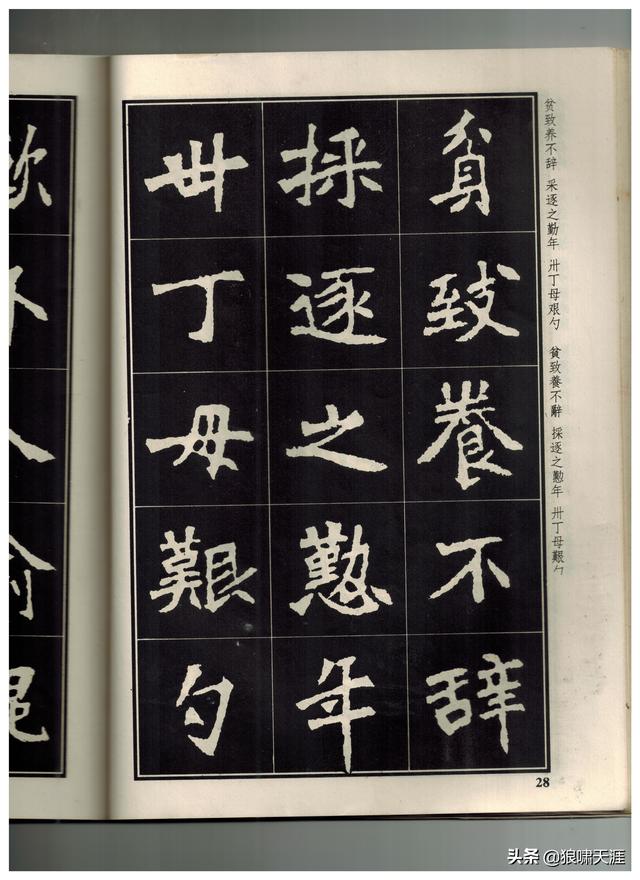 贫致养不辞 采逐之勤年 卅丁母艰勺 貧致養不辭 採逐之懃年 卅丁母艱勺
貧致養不辞
採逐之懃年
卅丁母艱勺
28
头条 @狼啸天涯